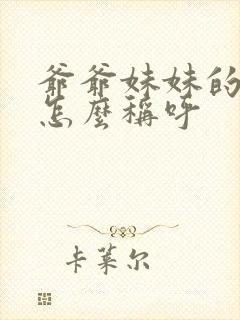 爷爷妹妹的
怎麼稱呼
卡莱尔